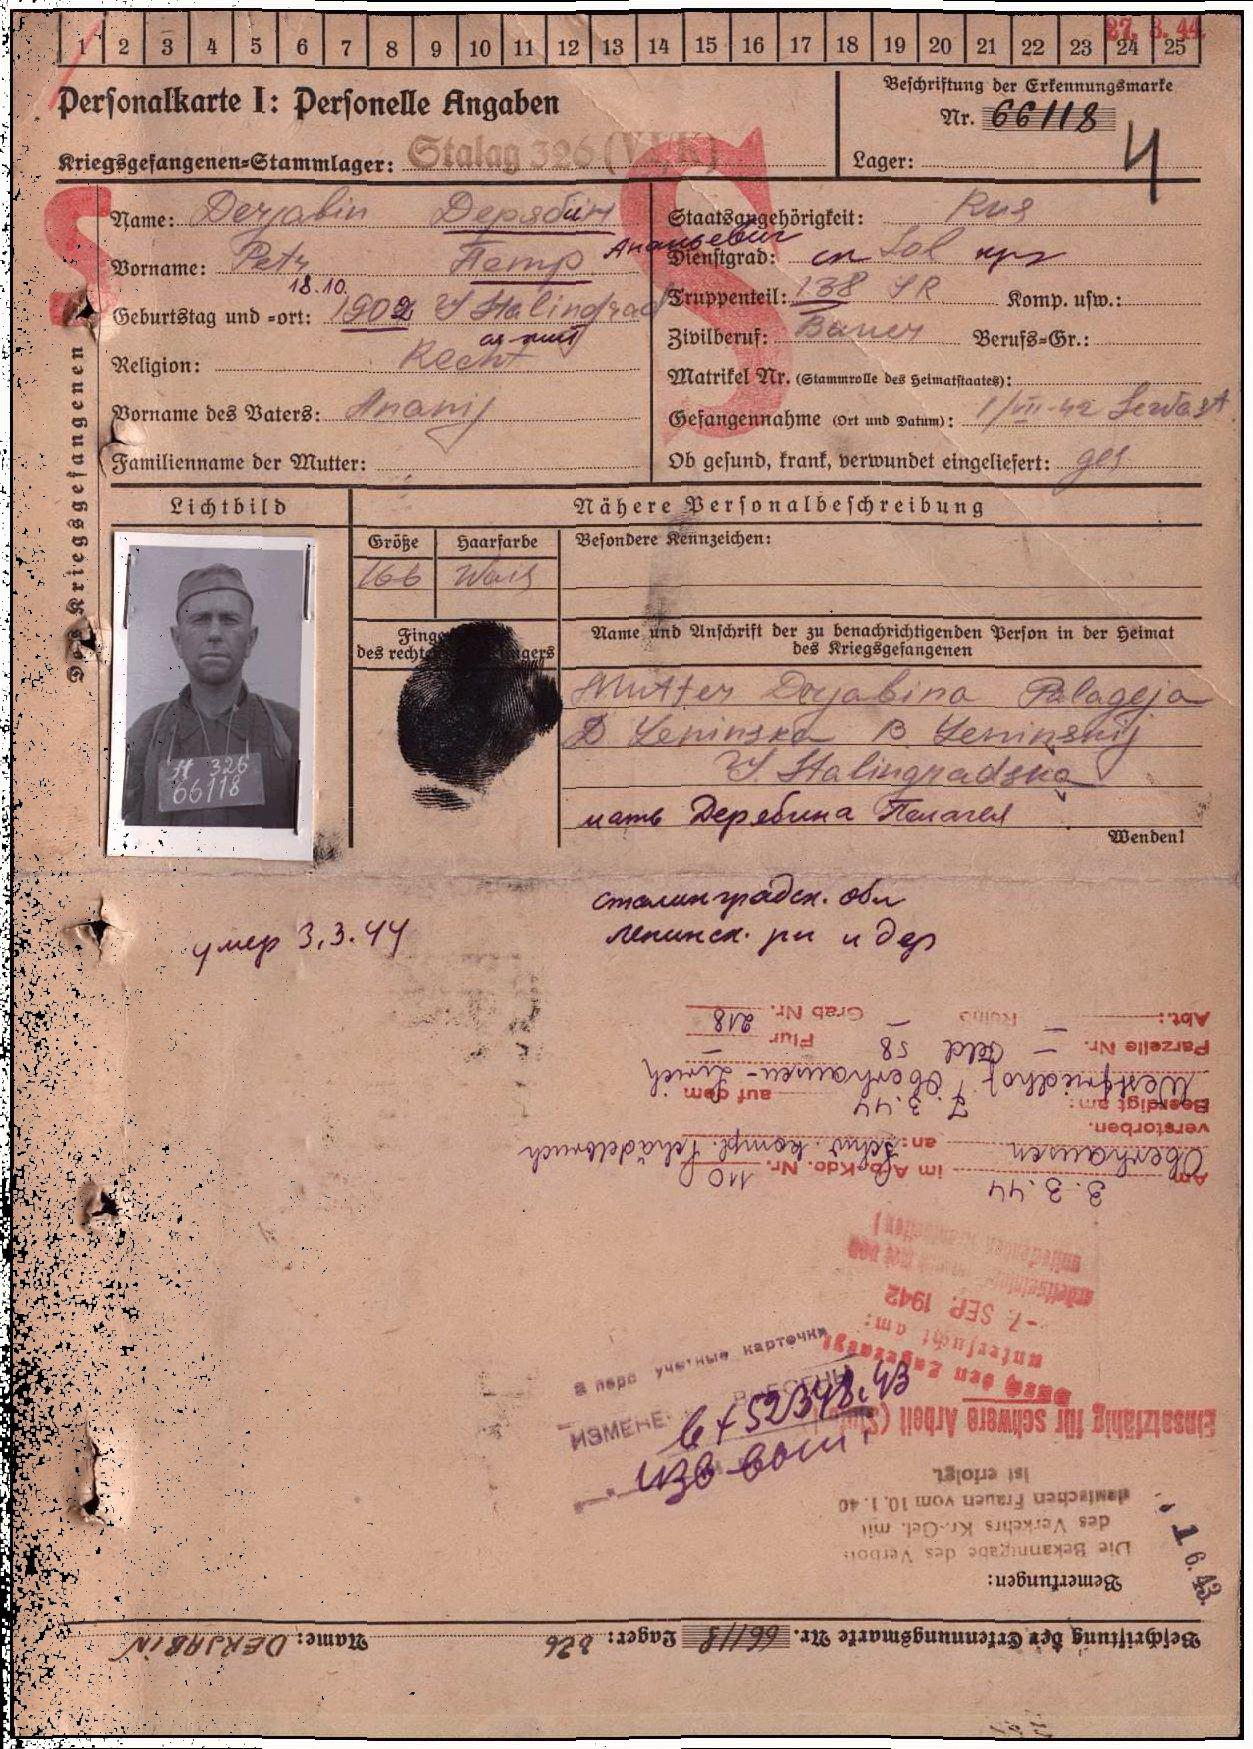 1 2 3 4 5 6 7 8 9 10 11 12 13 14 15 16 17 18 19 20 21 22 23 24 25
27. 3. 44.
Personalkarte I: Personelle Angaben
Beschriftung der Erkennungsmarke
Nr. 66118
Kriegsgefangenen-Stammlager: Stalag 326 (VI K)
Lager:
4
S S
Des Kriegsgefangenen
Name: Derjabin Дерябин
Staatsangehörigkeit: Rus
Vorname: Petr Петр Ананьевич
Dienstgrad: Sol
18.10.
Geburtstag und -ort: 1902 Stalingrad
Truppenteil: 138 SR Komp. usw.:
Religion: Recht
Zivilberuf: Bauer Berufs-Gr.:
Matrikel Nr. (Stammrolle des Heimatstaates):
Vorname des Vaters: Ananij
Gefangennahme (Ort und Datum): 1/VII-42 Sewast
Familienname der Mutter:
Ob gesund, krank, verwundet eingeliefert: ges
Lichtbild
Nähere Personalbeschreibung
Größe Haarfarbe Besondere Kennzeichen:
166
des rechten
Name und Anschrift der zu benachrichtigenden Person in der Heimat
des Kriegsgefangenen
326
66118
Mutter Derjabina Palageja
D Leninska B Leninskij
Stalingradska
мать Дерябина Пелагея
Wenden!
сталинградск. обл
умер 3.3.44
ленинск. рн и дер
Beschriftung der Erkennungsmarke Nr. 66118 Lager: 326 Name: DERJABIN
Bemerkungen:
1 6. 43.
Die Bekanntgabe des Verbots
des Verkehrs Kr.-Gef. mit
deutschen Frauen vom 10.1.40
ist erfolgt.
Einsatzfähig für schwere Arbeit
Durch den Lagerarzt
untersucht am:
-7. SEP. 1942
учетные карточки
ИЗМЕНЕ
3.3.44
Am im Arb. Kdo. Nr. 110
Oberhausen an: Schw. kompl. Schädelbruch
verstorben.
Beerdigt am: 7.3.44 auf dem
Westfriedhof Oberhausen-Lirich
Parzelle Nr. — Feld 58 Flur —
Abt.: — Reihe — Grab Nr. 218